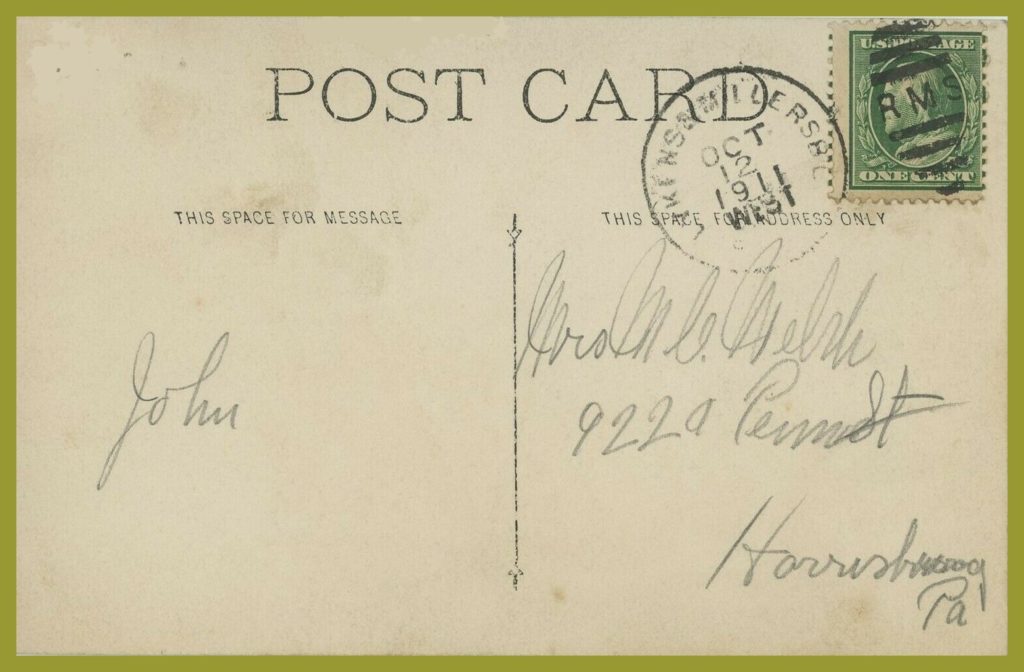 POST CARD
U.S. POSTAGE
RMS
ONE CENT
LYKENS & MILLERSB
OCT
12
1911
WEST
THIS SPACE FOR MESSAGE
THIS SPACE FOR ADDRESS ONLY
John
Mrs M C. Welsh
922a Penn St
Harrisburg
Pa